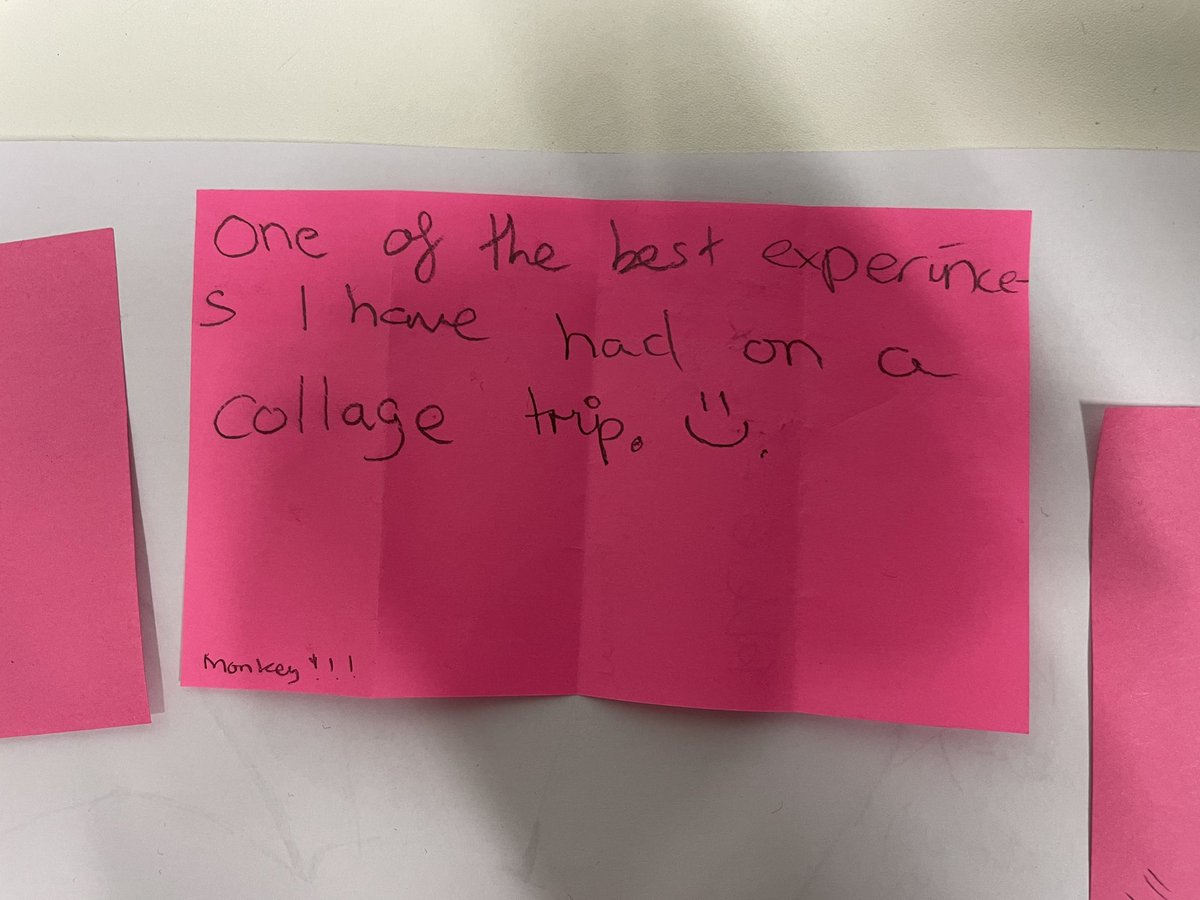 One of the best experince-
s I have had on a
collage trip. :).
Monkey!!!